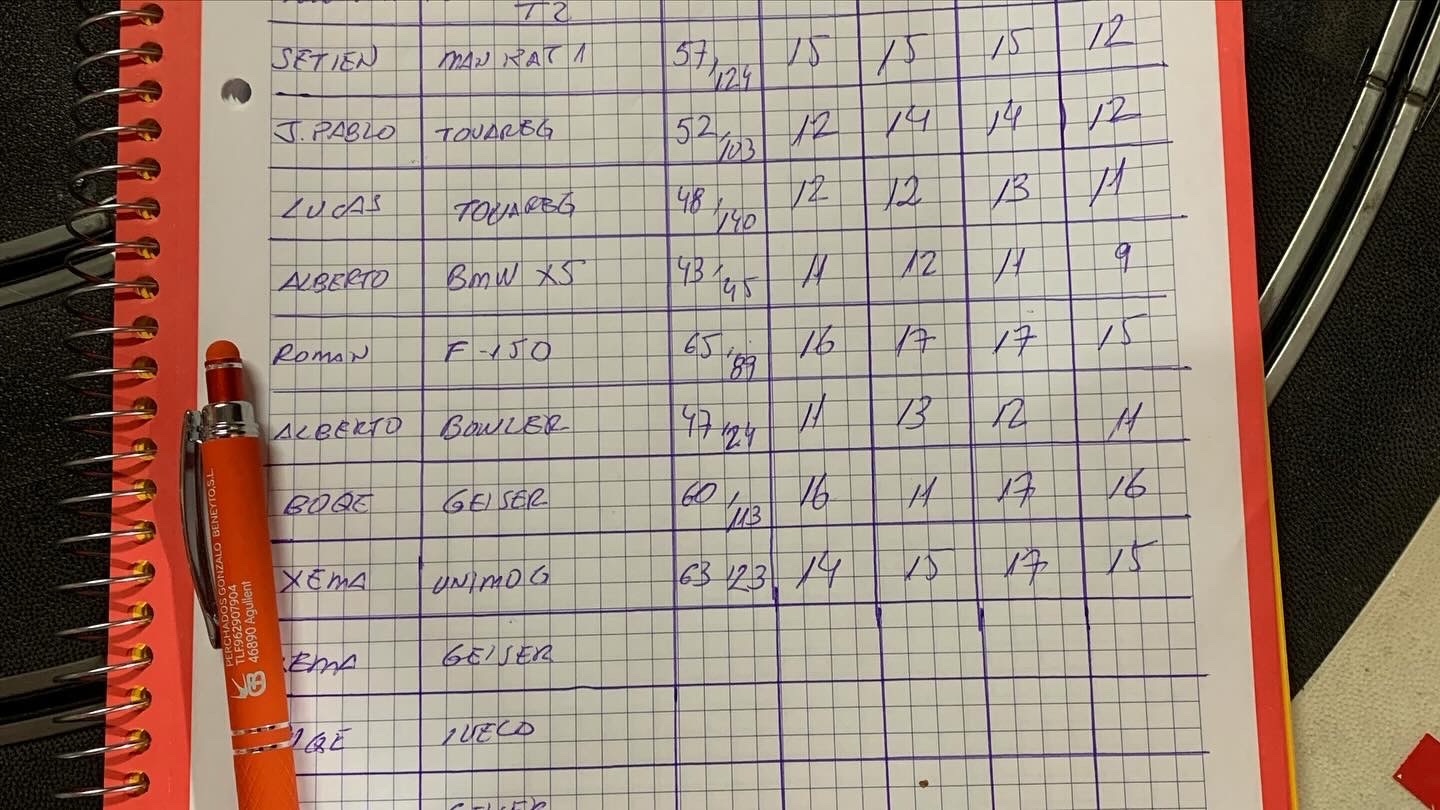 T2
SETIEN MAN KAT 1 57,124 15 15 15 12
J. PABLO TOUAREG 52,103 12 14 14 12
LUCAS TOUAREG 48,140 12 12 13 11
ALBERTO BMW X5 43,45 11 12 11 9
ROMAN F-150 65,89 16 17 17 15
ALBERTO BOWLER 47,24 11 13 12 11
BOQE GEISER 60,113 16 11 17 16
XEMA UNIMOG 63 123 14 15 17 15
EMA GEISER
QE IVECO
GEISER
PERCHADOS GONZALO BENEYTO,S.L.
TLF.962907904
46890 Agullent